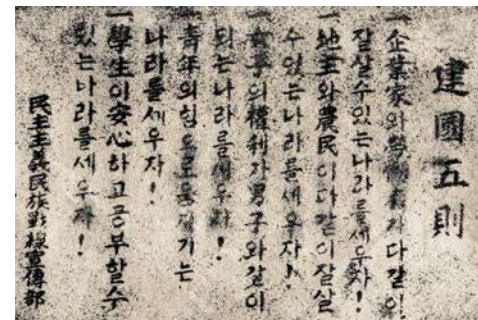 建國五則
一企業家와勞働者가다같이
잘살수있는나라를세우자!
一地主와農民이다같이잘살
수있는나라를세우자!
一女子의權利가男子와같이
되는나라를세우자!
一靑年의힘으로
나라를세우자!
一學生이安心하고공부할수
있는나라를세우자!
民主主義民族戰線宣傳部